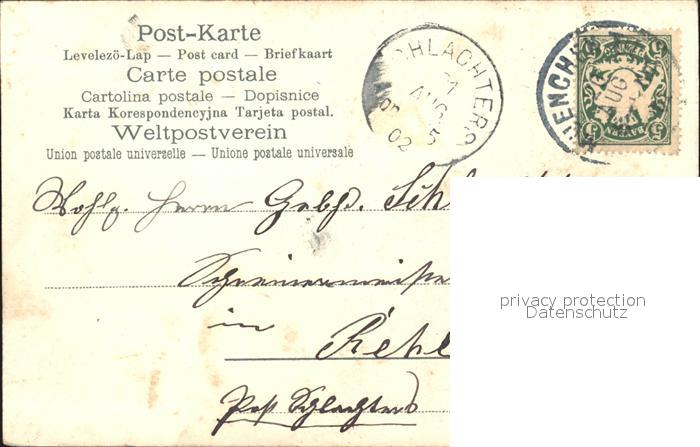 Post-Karte
Levelezö-Lap — Post card — Briefkaart
Carte postale
Cartolina postale — Dopisnice
Karta Korespondencyjna Tarjeta postal.
Weltpostverein
Union postale universelle — Unione postale universale
SCHLACHTERS
AUG
02
MUENCHEN
AUG
5
5
BAYERN
Wohlg. Herrn Gebh. Sch
Schreinermeister
in
Rehl
Post Schlachters
privacy protection
Datenschutz